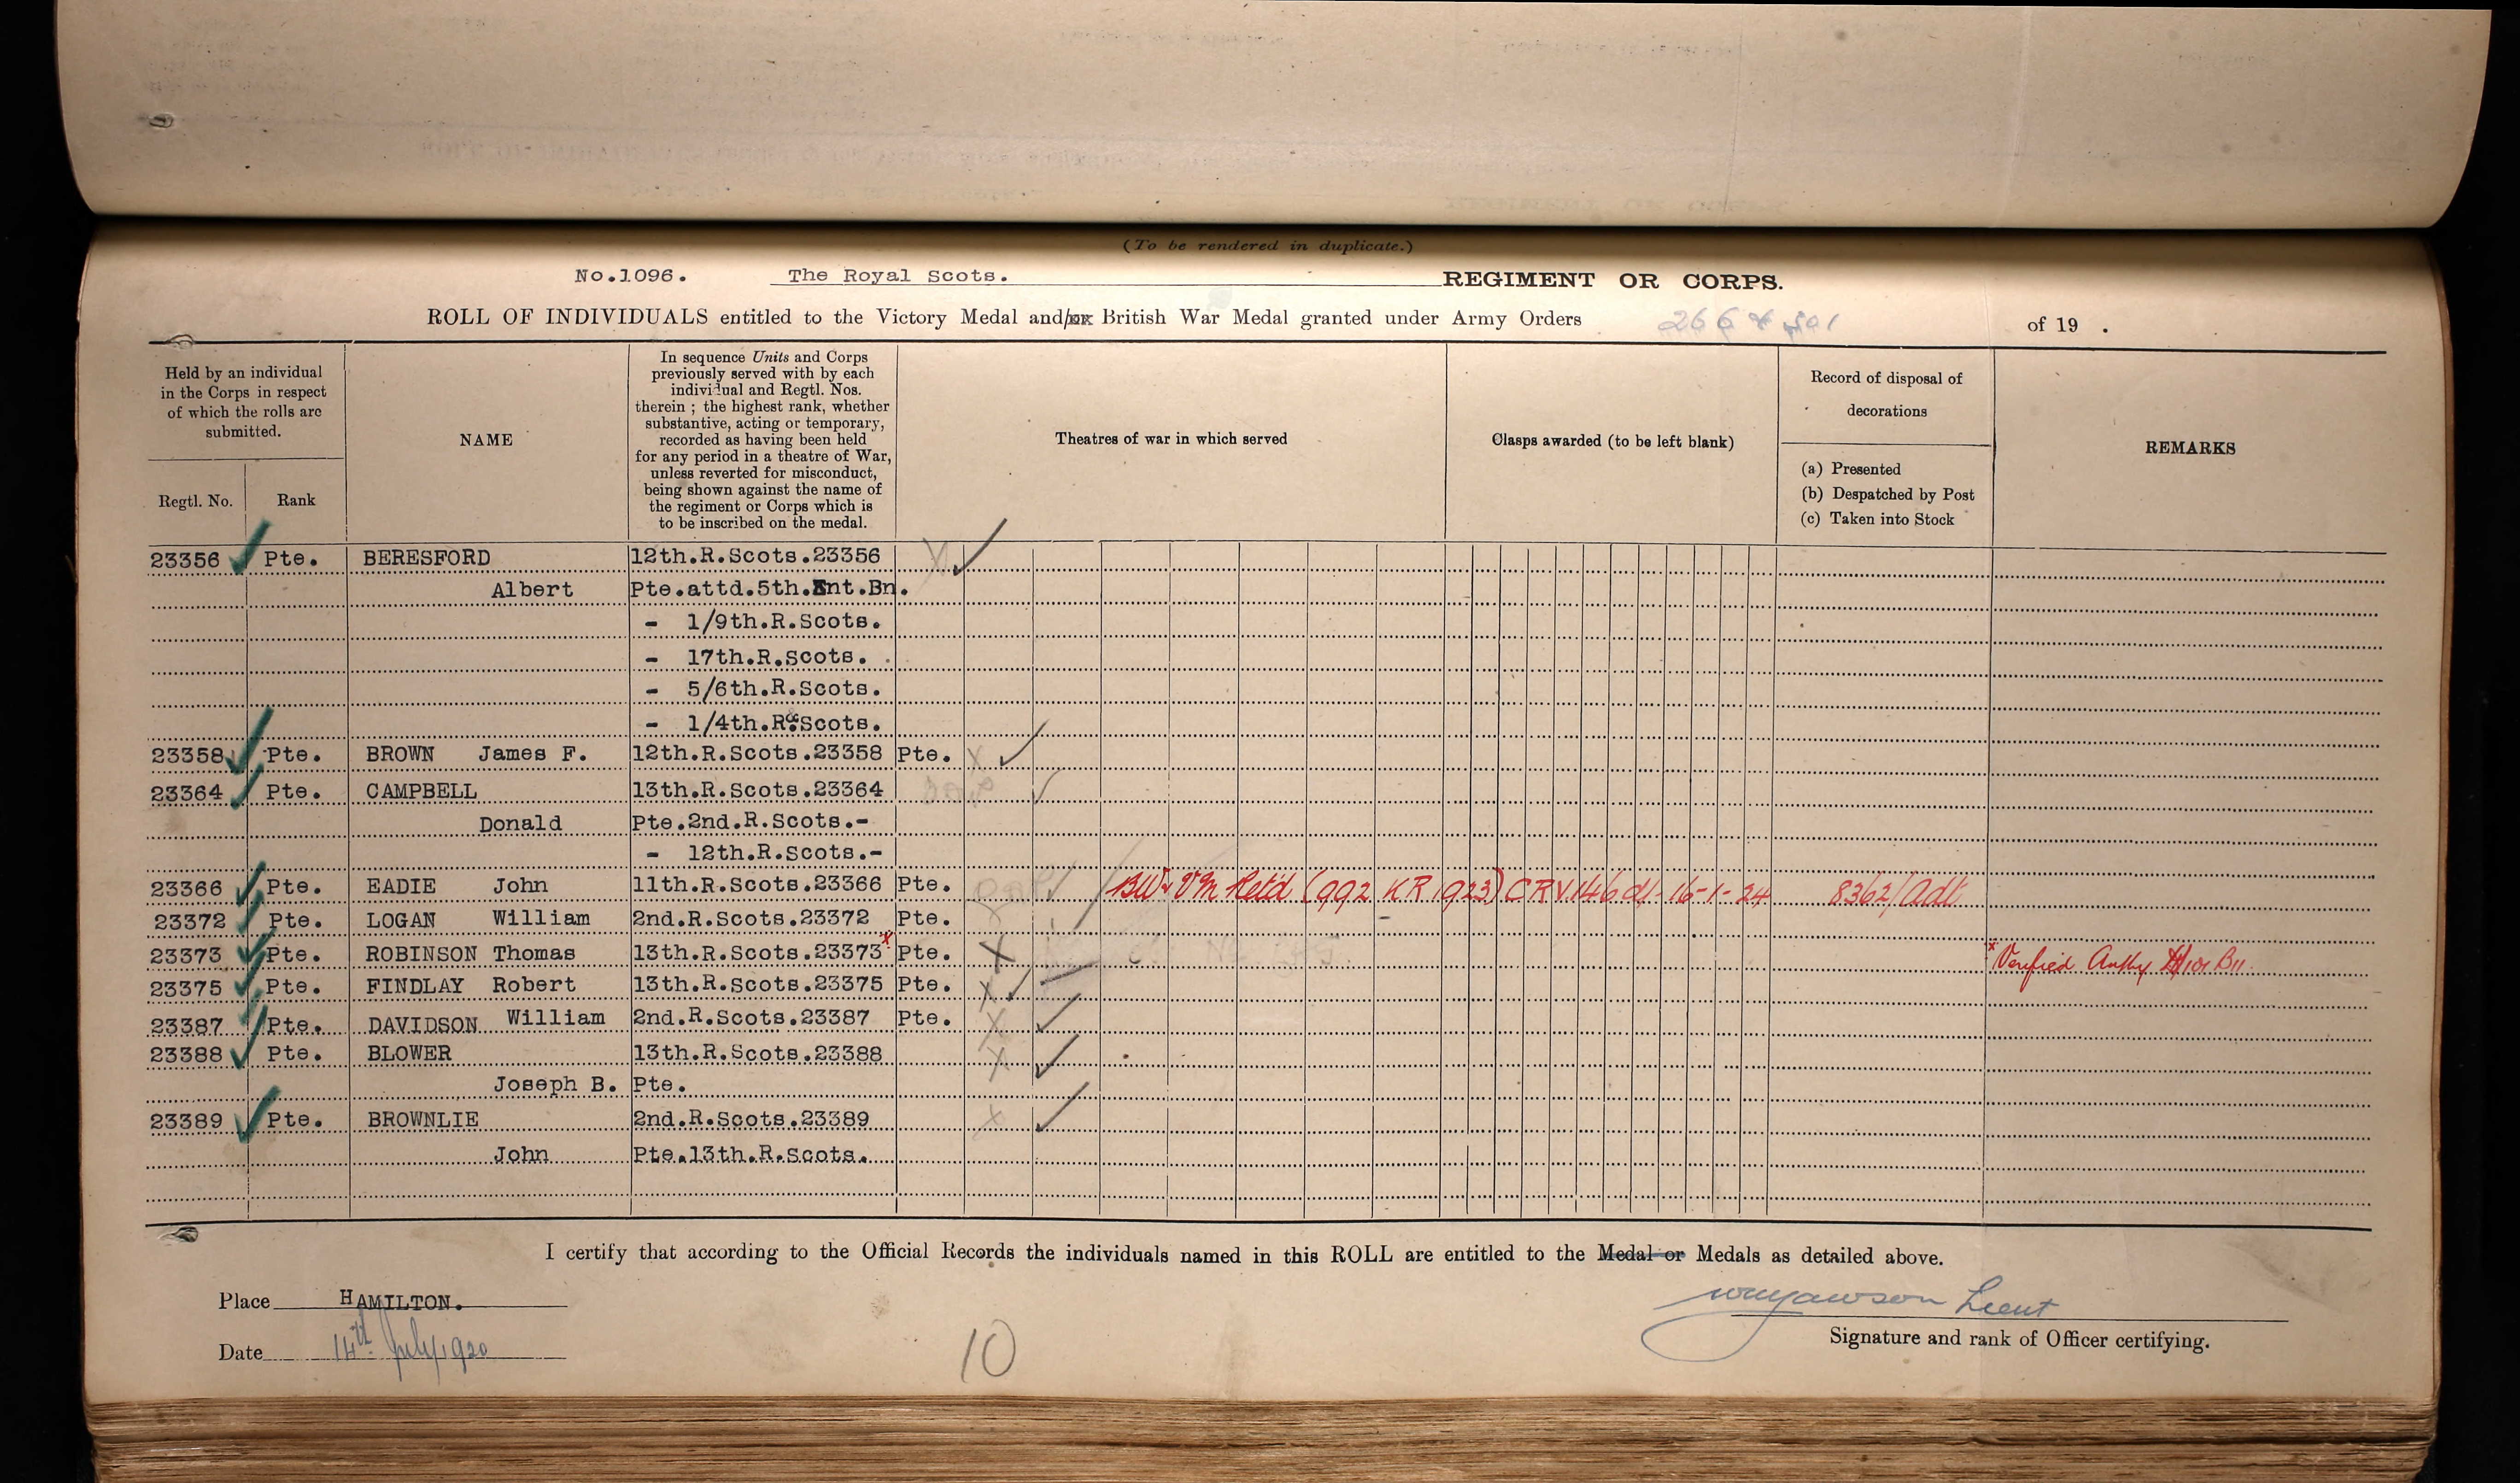 (To be rendered in duplicate.)
No.1096. The Royal Scots. REGIMENT OR CORPS.
ROLL OF INDIVIDUALS entitled to the Victory Medal and/or British War Medal granted under Army Orders 266 & 301 of 19 .
Held by an individual
in the Corps in respect
of which the rolls are
submitted.
Regtl. No. Rank
NAME
In sequence Units and Corps
previously served with by each
individual and Regtl. Nos.
therein ; the highest rank, whether
substantive, acting or temporary,
recorded as having been held
for any period in a theatre of War,
unless reverted for misconduct,
being shown against the name of
the regiment or Corps which is
to be inscribed on the medal.
Theatres of war in which served
Clasps awarded (to be left blank)
Record of disposal of
decorations
(a) Presented
(b) Despatched by Post
(c) Taken into Stock
REMARKS
23356 Pte. BERESFORD 12th.R.Scots.23356 X
Albert Pte.attd.5th.Ent.Bn.
- 1/9th.R.Scots.
- 17th.R.Scots.
- 5/6th.R.Scots.
- 1/4th.R.Scots.
23358 Pte. BROWN James F. 12th.R.Scots.23358 Pte. X
23364 Pte. CAMPBELL 13th.R.Scots.23364
Donald Pte.2nd.R.Scots.-
- 12th.R.Scots.-
23366 Pte. EADIE John 11th.R.Scots.23366 Pte. BW & VM Retd (992 KR 1923) CRV 146 d/- 16-1-24 8362/Adt
23372 Pte. LOGAN William 2nd.R.Scots.23372 Pte.
23373 Pte. ROBINSON Thomas 13th.R.Scots.23373 x Pte. X x Verified /101 B11
23375 Pte. FINDLAY Robert 13th.R.Scots.23375 Pte. X
23387 Pte. DAVIDSON William 2nd.R.Scots.23387 Pte. X
23388 Pte. BLOWER 13th.R.Scots.23388 X
Joseph B. Pte.
23389 Pte. BROWNLIE 2nd.R.Scots.23389 X
John Pte.13th.R.Scots.
I certify that according to the Official Records the individuals named in this ROLL are entitled to the Medal or Medals as detailed above.
Place HAMILTON.
Lieut
Signature and rank of Officer certifying.
Date 14th July 1920
10